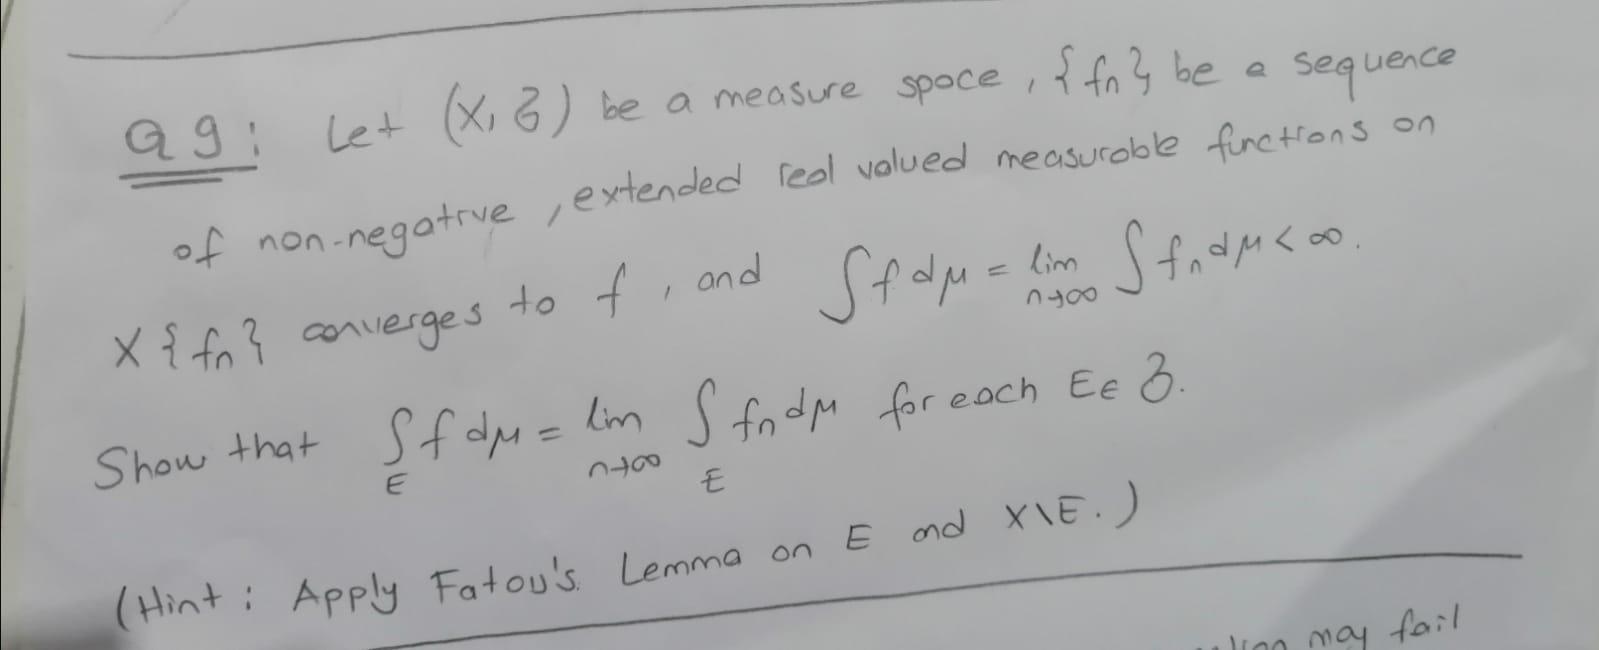 Q9: Let (X, ℨ) be a measure space, {fn} be a sequence
of non-negative, extended real valued measurable functions on
X {fn} converges to f, and ∫ f dμ = lim n→∞ ∫ fn dμ < ∞.
Show that ∫_E f dμ = lim n→∞ ∫_E fn dμ for each E ∈ ℨ.
(Hint: Apply Fatou's Lemma on E and X\E.)
may fail